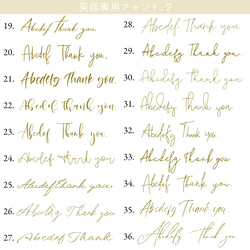 英語専用フォント.2
19. Abcdef Thank you.
20. Abcdef Thank you.
21. Abcdefg Thank you
22. Abcdef Thank you.
23. Abcdef Thank you.
24. Abcdef Thank you
25. Abcdef Thank you.
26. Abcdefg Thank you
27. Abcdef Thank
28. Abcdef Thank you.
29. Abcdefg Thank you.
30. Abcdefg Thank you
31. Abcdefg Thank you
32. Abcdef Thank you
33. Abcdefg Thank you
34. Abcdef Thank you.
35. Abcdefg Thank you.
36. Abcdef Thank you.